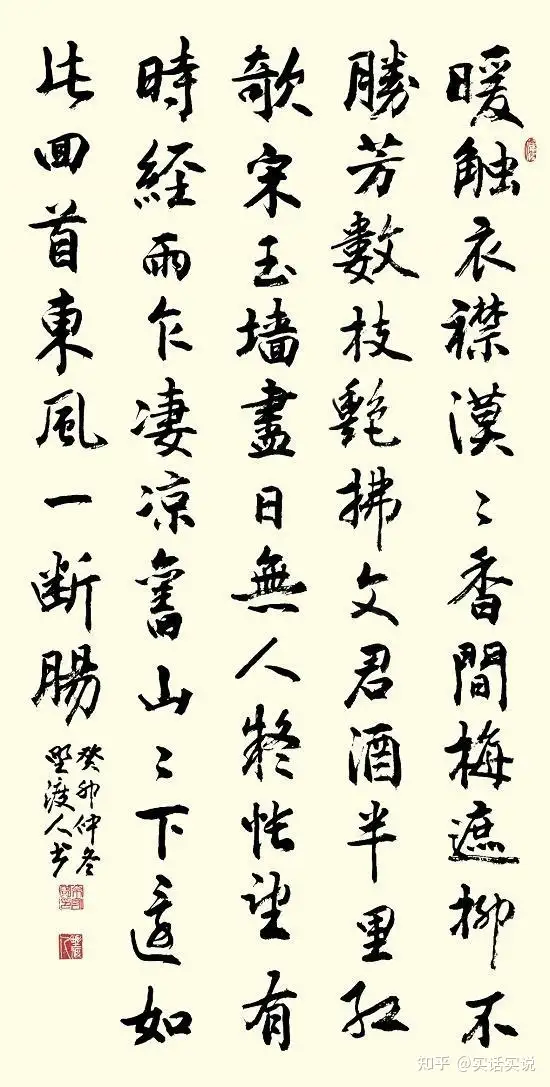 暖触衣襟漠〻香間梅遮柳不
勝芳數枝艷拂文君酒半里紅
欹宋玉墙盡日無人疑悵望有
時經雨乍凄凉舊山〻下還如
此回首東風一断腸
癸卯仲冬
野渡人书
知乎 @实话实说